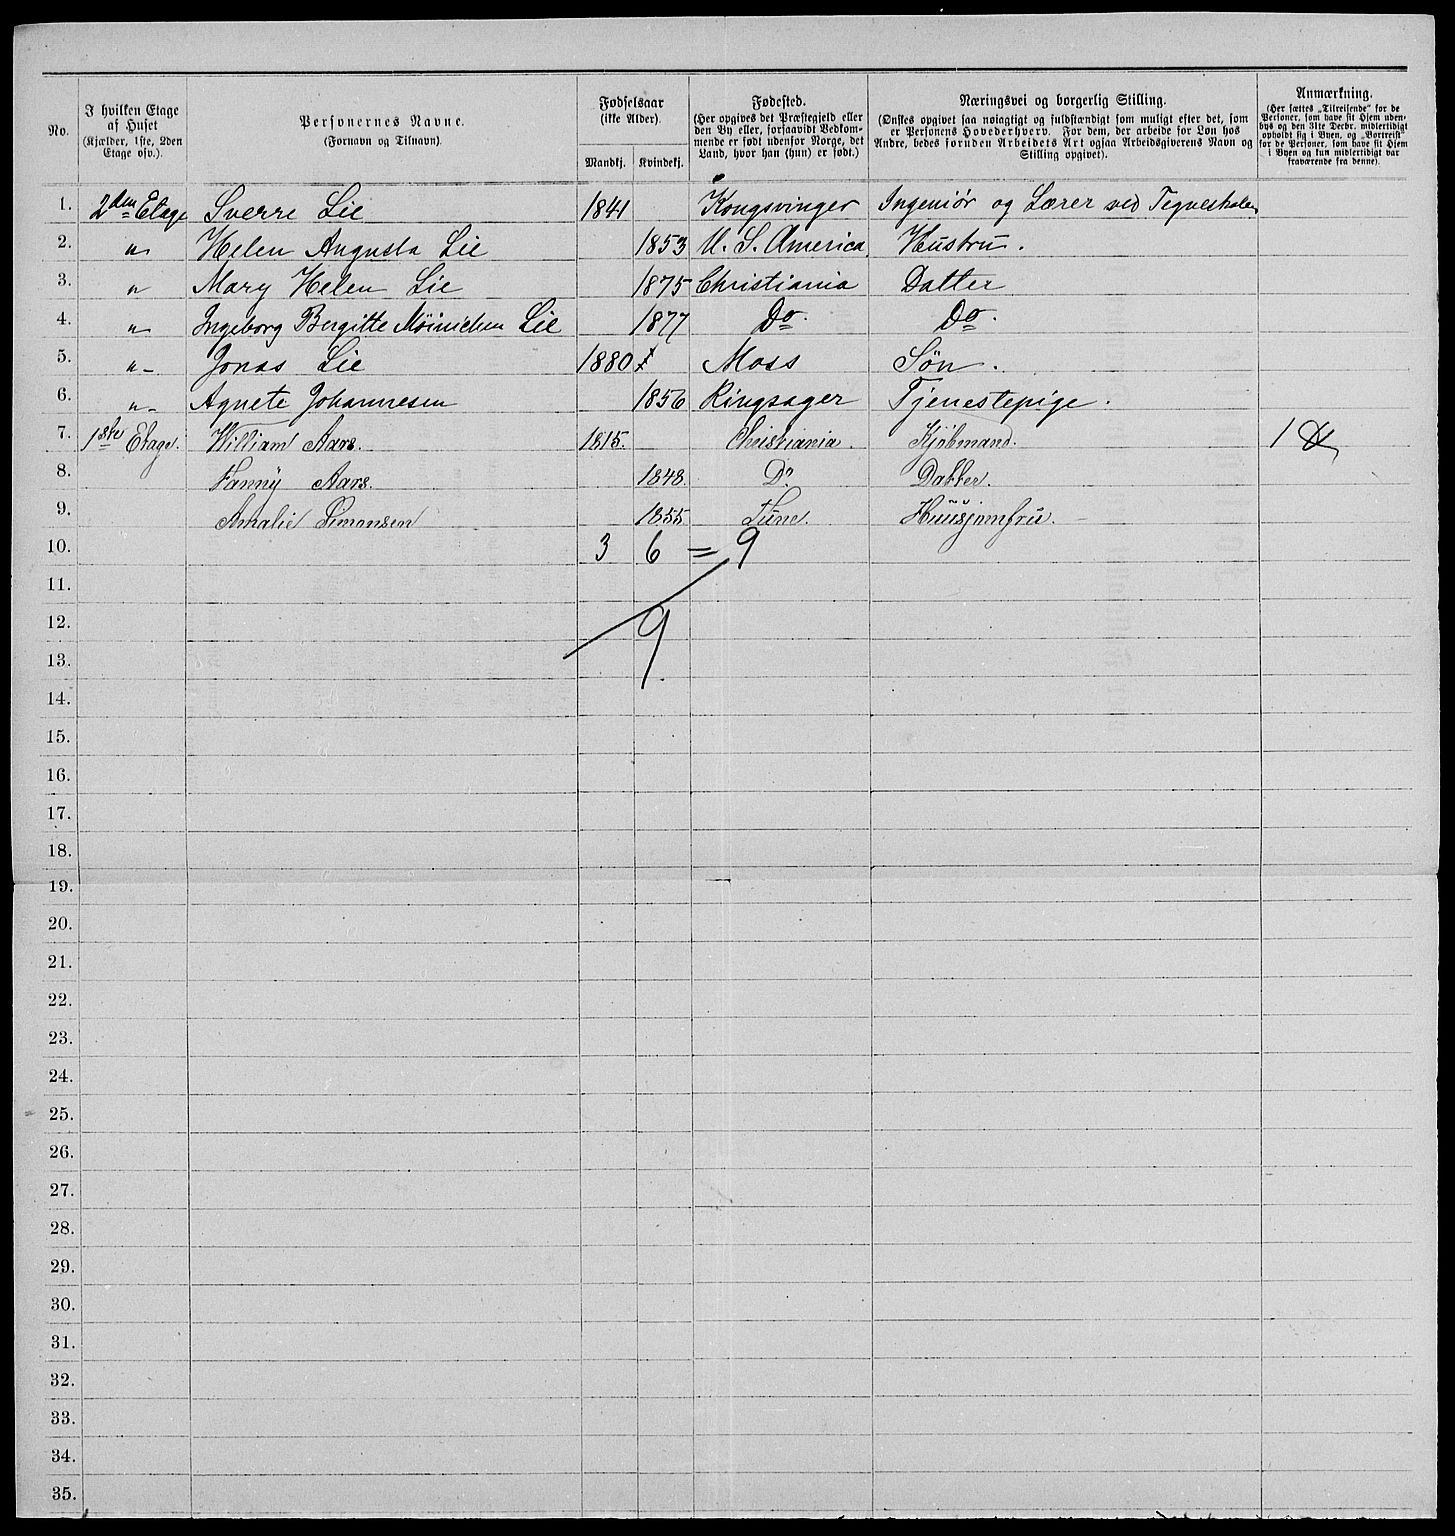 No.
I hvilken Etage
af Huset
(Kjælder, 1ste, 2den
Etage osv.).
Personernes Navne.
(Fornavn og Tilnavn).
Fødselsaar
(ikke Alder).
Mandkj. Kvindekj.
Fødested.
(Her opgives det Præstegjeld eller
den By eller, forsaavidt Vedkom-
mende er født udenfor Norge, det
Land, hvor han (hun) er født.)
Næringsvei og borgerlig Stilling.
(Ønskes opgivet saa nøiagtigt og fuldstændigt som muligt efter det, som
er Personens Hovederhverv. For dem, der arbeide for Løn hos
Andre, bedes foruden Arbeidets Art ogsaa Arbeidsgiverens Navn og
Stilling opgivet).
Anmærkning.
(Her sættes „Tilreisende“ for de
Personer, som have sit Hjem uden-
bys og den 31te Decbr. midlertidigt
opholdt sig i Byen, og „Bortreist“
for de Personer, som have sit Hjem
i Byen og kun midlertidigt var
fraværende fra denne).
1. 2den Etage Sverre Lie 1841 Kongsvinger Ingeniør og Lærer ved Tegneskolen
2. " Helen Augusta Lie 1853 U. S. America. Hustru.
3. " Mary Helen Lie 1875 Christiania Datter
4. " Ingeborg Bergitte Möinichen Lie 1877 Do. Do.
5. " Jonas Lie 1880 Moss Søn.
6. " Agnete Johannesen 1856 Ringsager Tjenestepige.
7. 1ste Etage. William Aars. 1815. Christiania. Kjøbmand. 1
8. Fanny Aars. 1848. Do Datter.
9. Amalie Simonsen 1855 Tune. Huusjomfru.
10. 3 6 = 9
11.
12. 9
13.
14.
15.
16.
17.
18.
19.
20.
21.
22.
23.
24.
25.
26.
27.
28.
29.
30.
31.
32.
33.
34.
35.